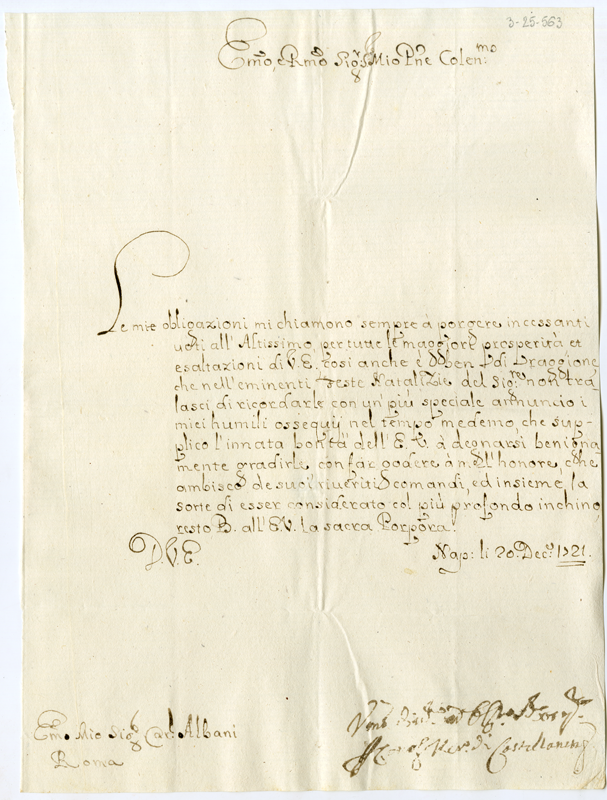 3-25-563
Emo, e Rmo Sig.r Mio Pne Colen:mo
Le mie obligazioni mi chiamono sempre à porgere incessanti
uoti all'Altissimo per tutte le maggiori prosperità et
esaltazioni di V.E. cosi anche è ben di raggione
che nell'eminenti feste Natalizie del Sig.re non tra
lasci di ricordarle con un più speciale annuncio i
miei humili ossequij nel tempo medemo, che sup-
plico l'innata bontà dell'E.V. à degnarsi benigna
mente gradirle con far godere à me l'honore, che
ambisco de suoi riueriti comandi, ed insieme la
sorte di esser considerato col più profondo inchino
resto B. all'E.V. la sacra Porpora.
D.V.E. Nap: li 20. Dec: 1721.
Emo Mio Sig.r Card. Albani
Roma
di Castellaneta